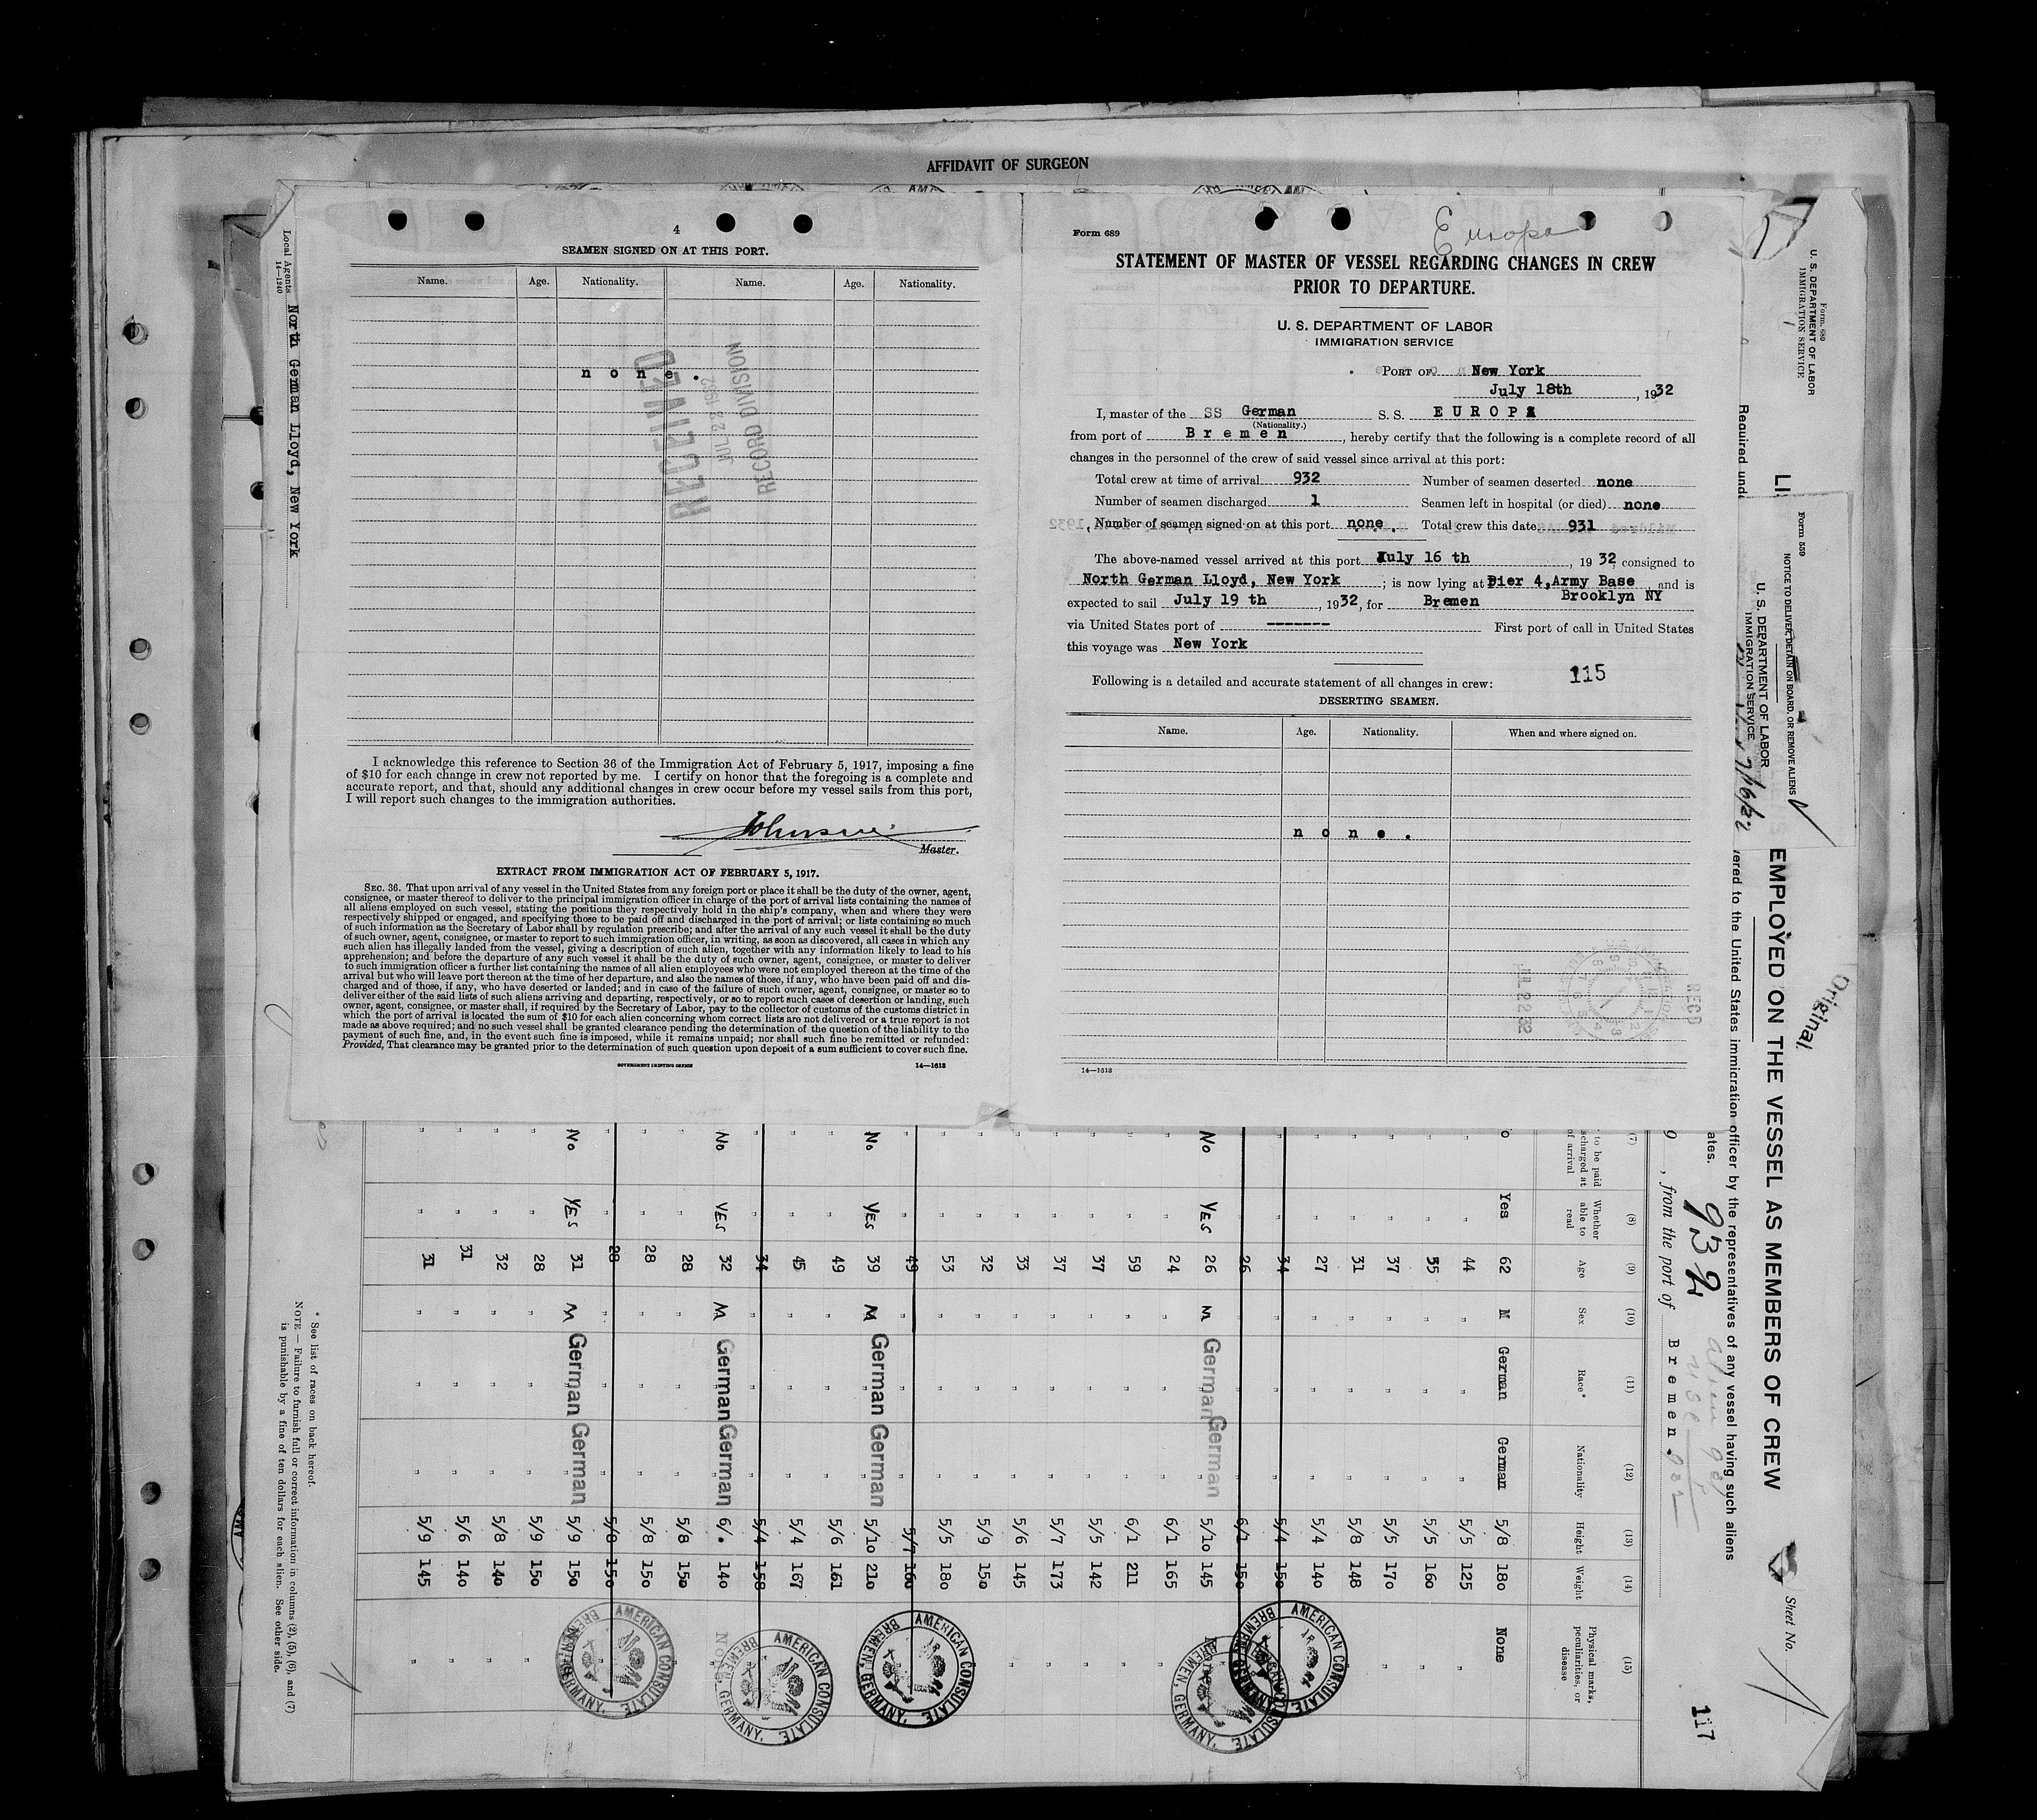 AFFIDAVIT OF SURGEON
4
SEAMEN SIGNED ON AT THIS PORT.
Name. Age. Nationality. Name. Age. Nationality.
none.
RECEIVED
JUL 22 1932
RECORD DIVISION
I acknowledge this reference to Section 36 of the Immigration Act of February 5, 1917, imposing a fine
of $10 for each change in crew not reported by me. I certify on honor that the foregoing is a complete and
accurate report, and that, should any additional changes in crew occur before my vessel sails from this port,
I will report such changes to the immigration authorities.
Master.
EXTRACT FROM IMMIGRATION ACT OF FEBRUARY 5, 1917.
SEC. 36. That upon arrival of any vessel in the United States from any foreign port or place it shall be the duty of the owner, agent,
consignee, or master thereof to deliver to the principal immigration officer in charge of the port of arrival lists containing the names of
all aliens employed on such vessel, stating the positions they respectively hold in the ship's company, when and where they were
respectively shipped or engaged, and specifying those to be paid off and discharged in the port of arrival; or lists containing so much
of such information as the Secretary of Labor shall by regulation prescribe; and after the arrival of any such vessel it shall be the duty
of such owner, agent, consignee, or master to report to such immigration officer, in writing, as soon as discovered, all cases in which any
such alien has illegally landed from the vessel, giving a description of such alien, together with any information likely to lead to his
apprehension; and before the departure of any such vessel it shall be the duty of such owner, agent, consignee, or master to deliver
to such immigration officer a further list containing the names of all alien employees who were not employed thereon at the time of the
arrival but who will leave port thereon at the time of her departure, and also the names of those, if any, who have been paid off and dis-
charged and of those, if any, who have deserted or landed; and in case of the failure of such owner, agent, consignee, or master so to
deliver either of the said lists of such aliens arriving and departing, respectively, or so to report such cases of desertion or landing, such
owner, agent, consignee, or master shall, if required by the Secretary of Labor, pay to the collector of customs of the customs district in
which the port of arrival is located the sum of $10 for each alien concerning whom correct lists are not delivered or a true report is not
made as above required; and no such vessel shall be granted clearance pending the determination of the question of the liability to the
payment of such fine, and, in the event such fine is imposed, while it remains unpaid; nor shall such fine be remitted or refunded:
Provided, That clearance may be granted prior to the determination of such question upon deposit of a sum sufficient to cover such fine.
GOVERNMENT PRINTING OFFICE 14—1613
Local Agents North German Lloyd, New York
14—1240
Form 689
Europa
STATEMENT OF MASTER OF VESSEL REGARDING CHANGES IN CREW
PRIOR TO DEPARTURE.
U. S. DEPARTMENT OF LABOR
IMMIGRATION SERVICE
PORT OF New York
July 18th, 1932
I, master of the SS German S. S. EUROPA
(Nationality.)
from port of Bremen, hereby certify that the following is a complete record of all
changes in the personnel of the crew of said vessel since arrival at this port:
Total crew at time of arrival 932 Number of seamen deserted none
Number of seamen discharged 1 Seamen left in hospital (or died) none
Number of seamen signed on at this port none. Total crew this date 931
The above-named vessel arrived at this port July 16 th, 1932, consigned to
North German Lloyd, New York; is now lying at Pier 4, Army Base, and is
Brooklyn NY
expected to sail July 19 th, 1932, for Bremen
via United States port of ------- First port of call in United States
this voyage was New York
115
Following is a detailed and accurate statement of all changes in crew:
DESERTING SEAMEN.
Name. Age. Nationality. When and where signed on.
none.
JUL 22 32
REC'D
14—1613
Form 680
U. S. DEPARTMENT OF LABOR
IMMIGRATION SERVICE
Form 559
NOTICE TO DELIVER, DETAIN ON BOARD, OR REMOVE ALIENS
U. S. DEPARTMENT OF LABOR
IMMIGRATION SERVICE
7/16/32
Original
EMPLOYED ON THE VESSEL AS MEMBERS OF CREW
Sheet No. 1
117
Required und
ered to the United States immigration officer by the representatives of any vessel having such aliens
ates.
932
, from the port of Bremen.
(7) (8) (9) (10) (11) (12) (13) (14) (15)
to be paid
scharged at
of arrival
Whether
able to
read
Age Sex Race* Nationality Height Weight
Physical marks,
peculiarities, or
disease
Yes 62 M German German 5/8 180 None
" 44 " " " 5/5 125 "
" 35 " " " 5/5 160 "
" 37 " " " 5/5 170 "
" 31 " " " 5/8 148
" 27 " " " 5/4 140
" 34 " " " 5/4 150
" 26 " " " 6/1 150
No YES 26 M German German 5/10 145
" " 24 " " " 6/1 165
" " 59 " " " 6/1 211 "
" " 37 " " " 5/5 142 "
" " 37 " " " 5/7 173 "
" " 33 " " " 5/6 145 "
" " 32 " " " 5/9 150 "
" " 53 " " " 5/5 180
" " 49 " " " 5/7 160
No YES 39 M German German 5/10 210
" " 49 " " " 5/6 161
" " 45 " " " 5/4 167
" " 34 " " " 5/4 158
No YES 32 M German German 6/. 140 None
" " 28 " " " 5/8 150
" " 28 " " " 5/8 150
" " 28 " " " 5/8 150
No YES 31 M German German 5/9 150
" " 28 " " " 5/9 150 "
" " 32 " " " 5/8 140 "
" " 31 " " " 5/6 140 "
" " 31 " " " 5/9 145 "
AMERICAN CONSULATE
BREMEN, GERMANY.
AMERICAN CONSULATE
BREMEN, GERMANY.
AMERICAN CONSULATE
BREMEN, GERMANY.
AMERICAN CONSULATE
BREMEN, GERMANY.
AMERICAN CONSULATE
BREMEN, GERMANY.
* See list of races on back hereof.
NOTE.—Failure to furnish full or correct information in columns (2), (5), (6), and (7)
is punishable by a fine of ten dollars for each alien. See other side.